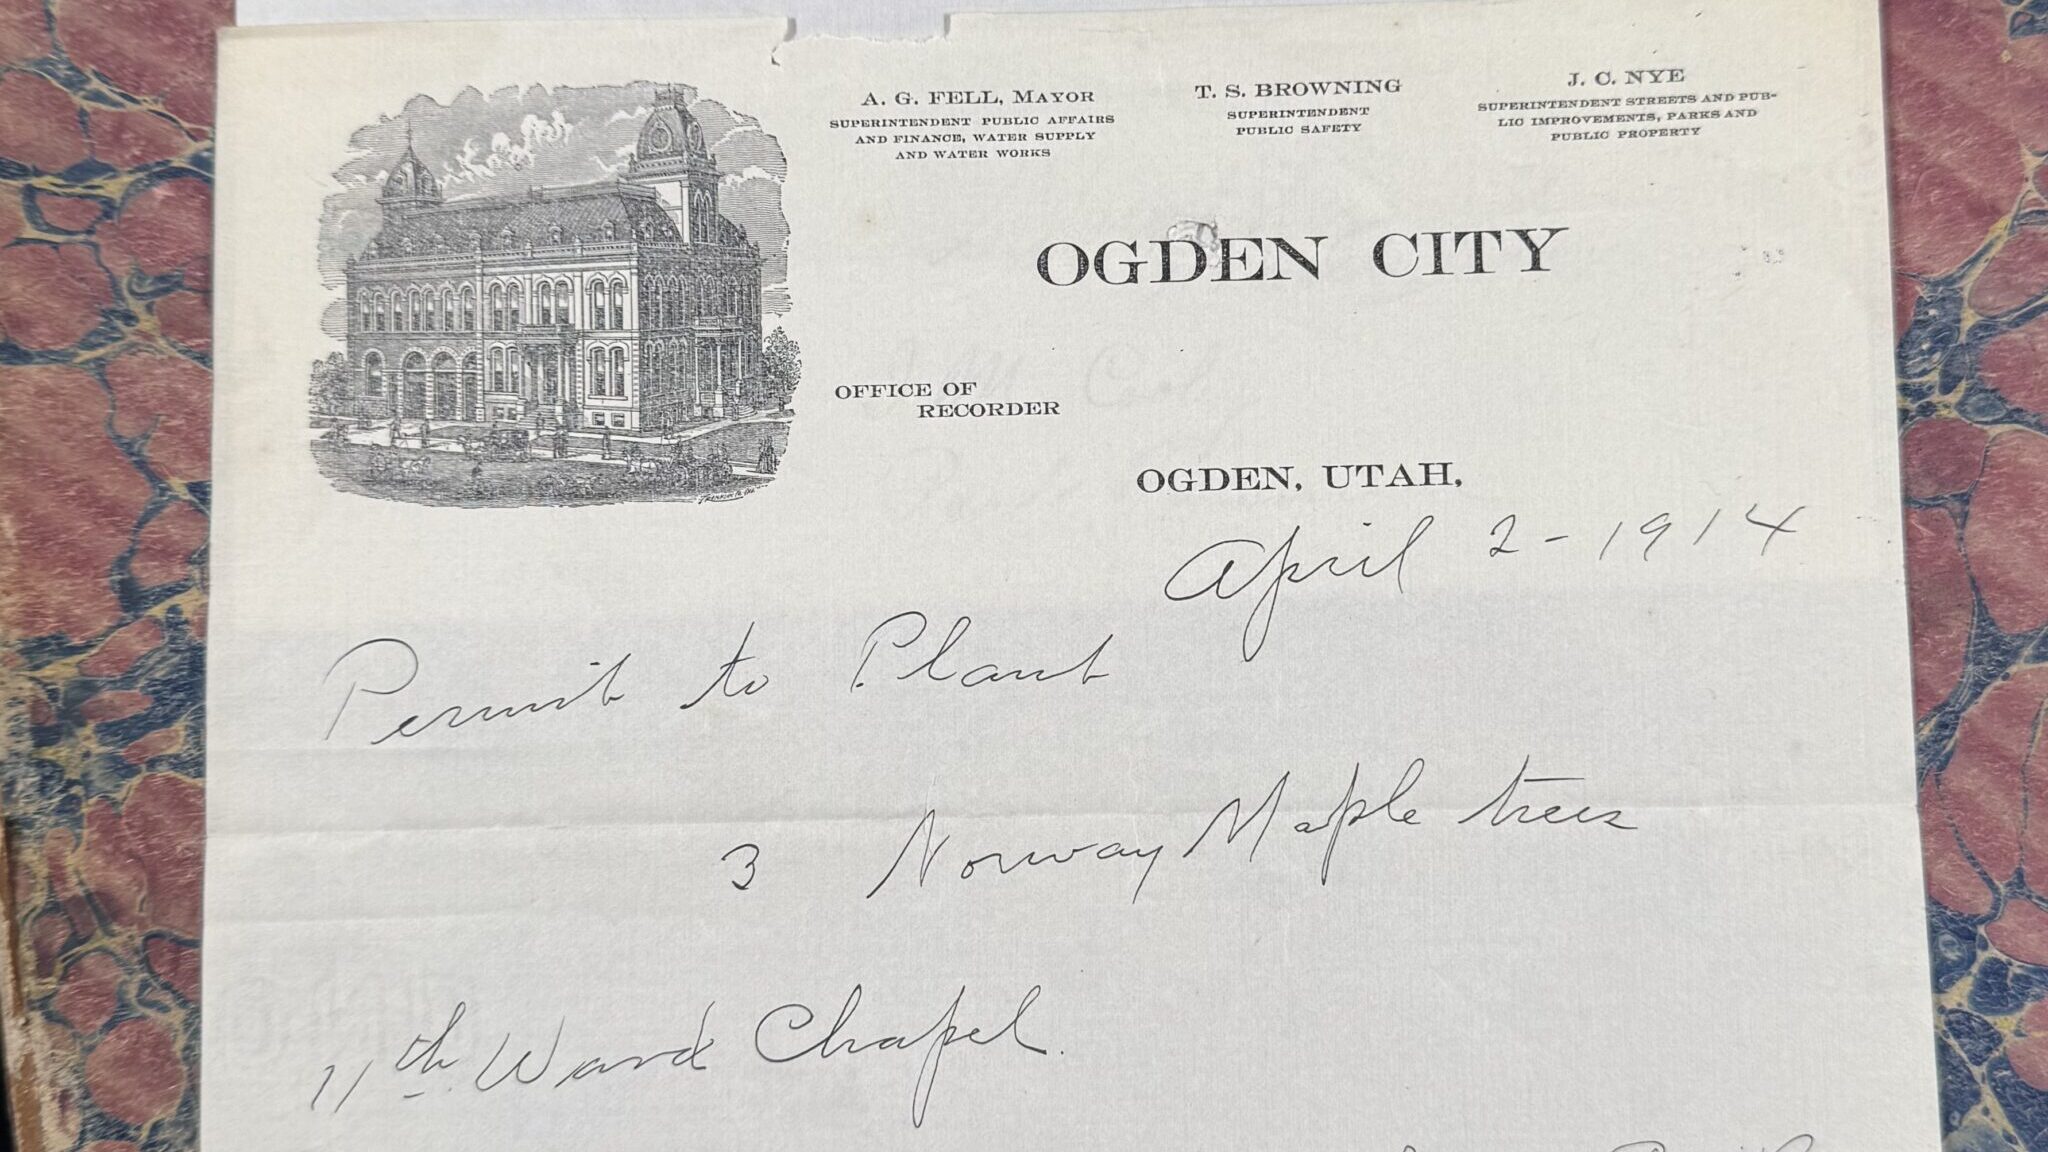 A. G. FELL, MAYOR
SUPERINTENDENT PUBLIC AFFAIRS
AND FINANCE, WATER SUPPLY
AND WATER WORKS
T. S. BROWNING
SUPERINTENDENT
PUBLIC SAFETY
J. C. NYE
SUPERINTENDENT STREETS AND PUB-
LIC IMPROVEMENTS, PARKS AND
PUBLIC PROPERTY
OGDEN CITY
OFFICE OF
RECORDER
OGDEN, UTAH,
April 2 - 1914
Permit to Plant
3 Norway Maple trees
11th Ward Chapel.